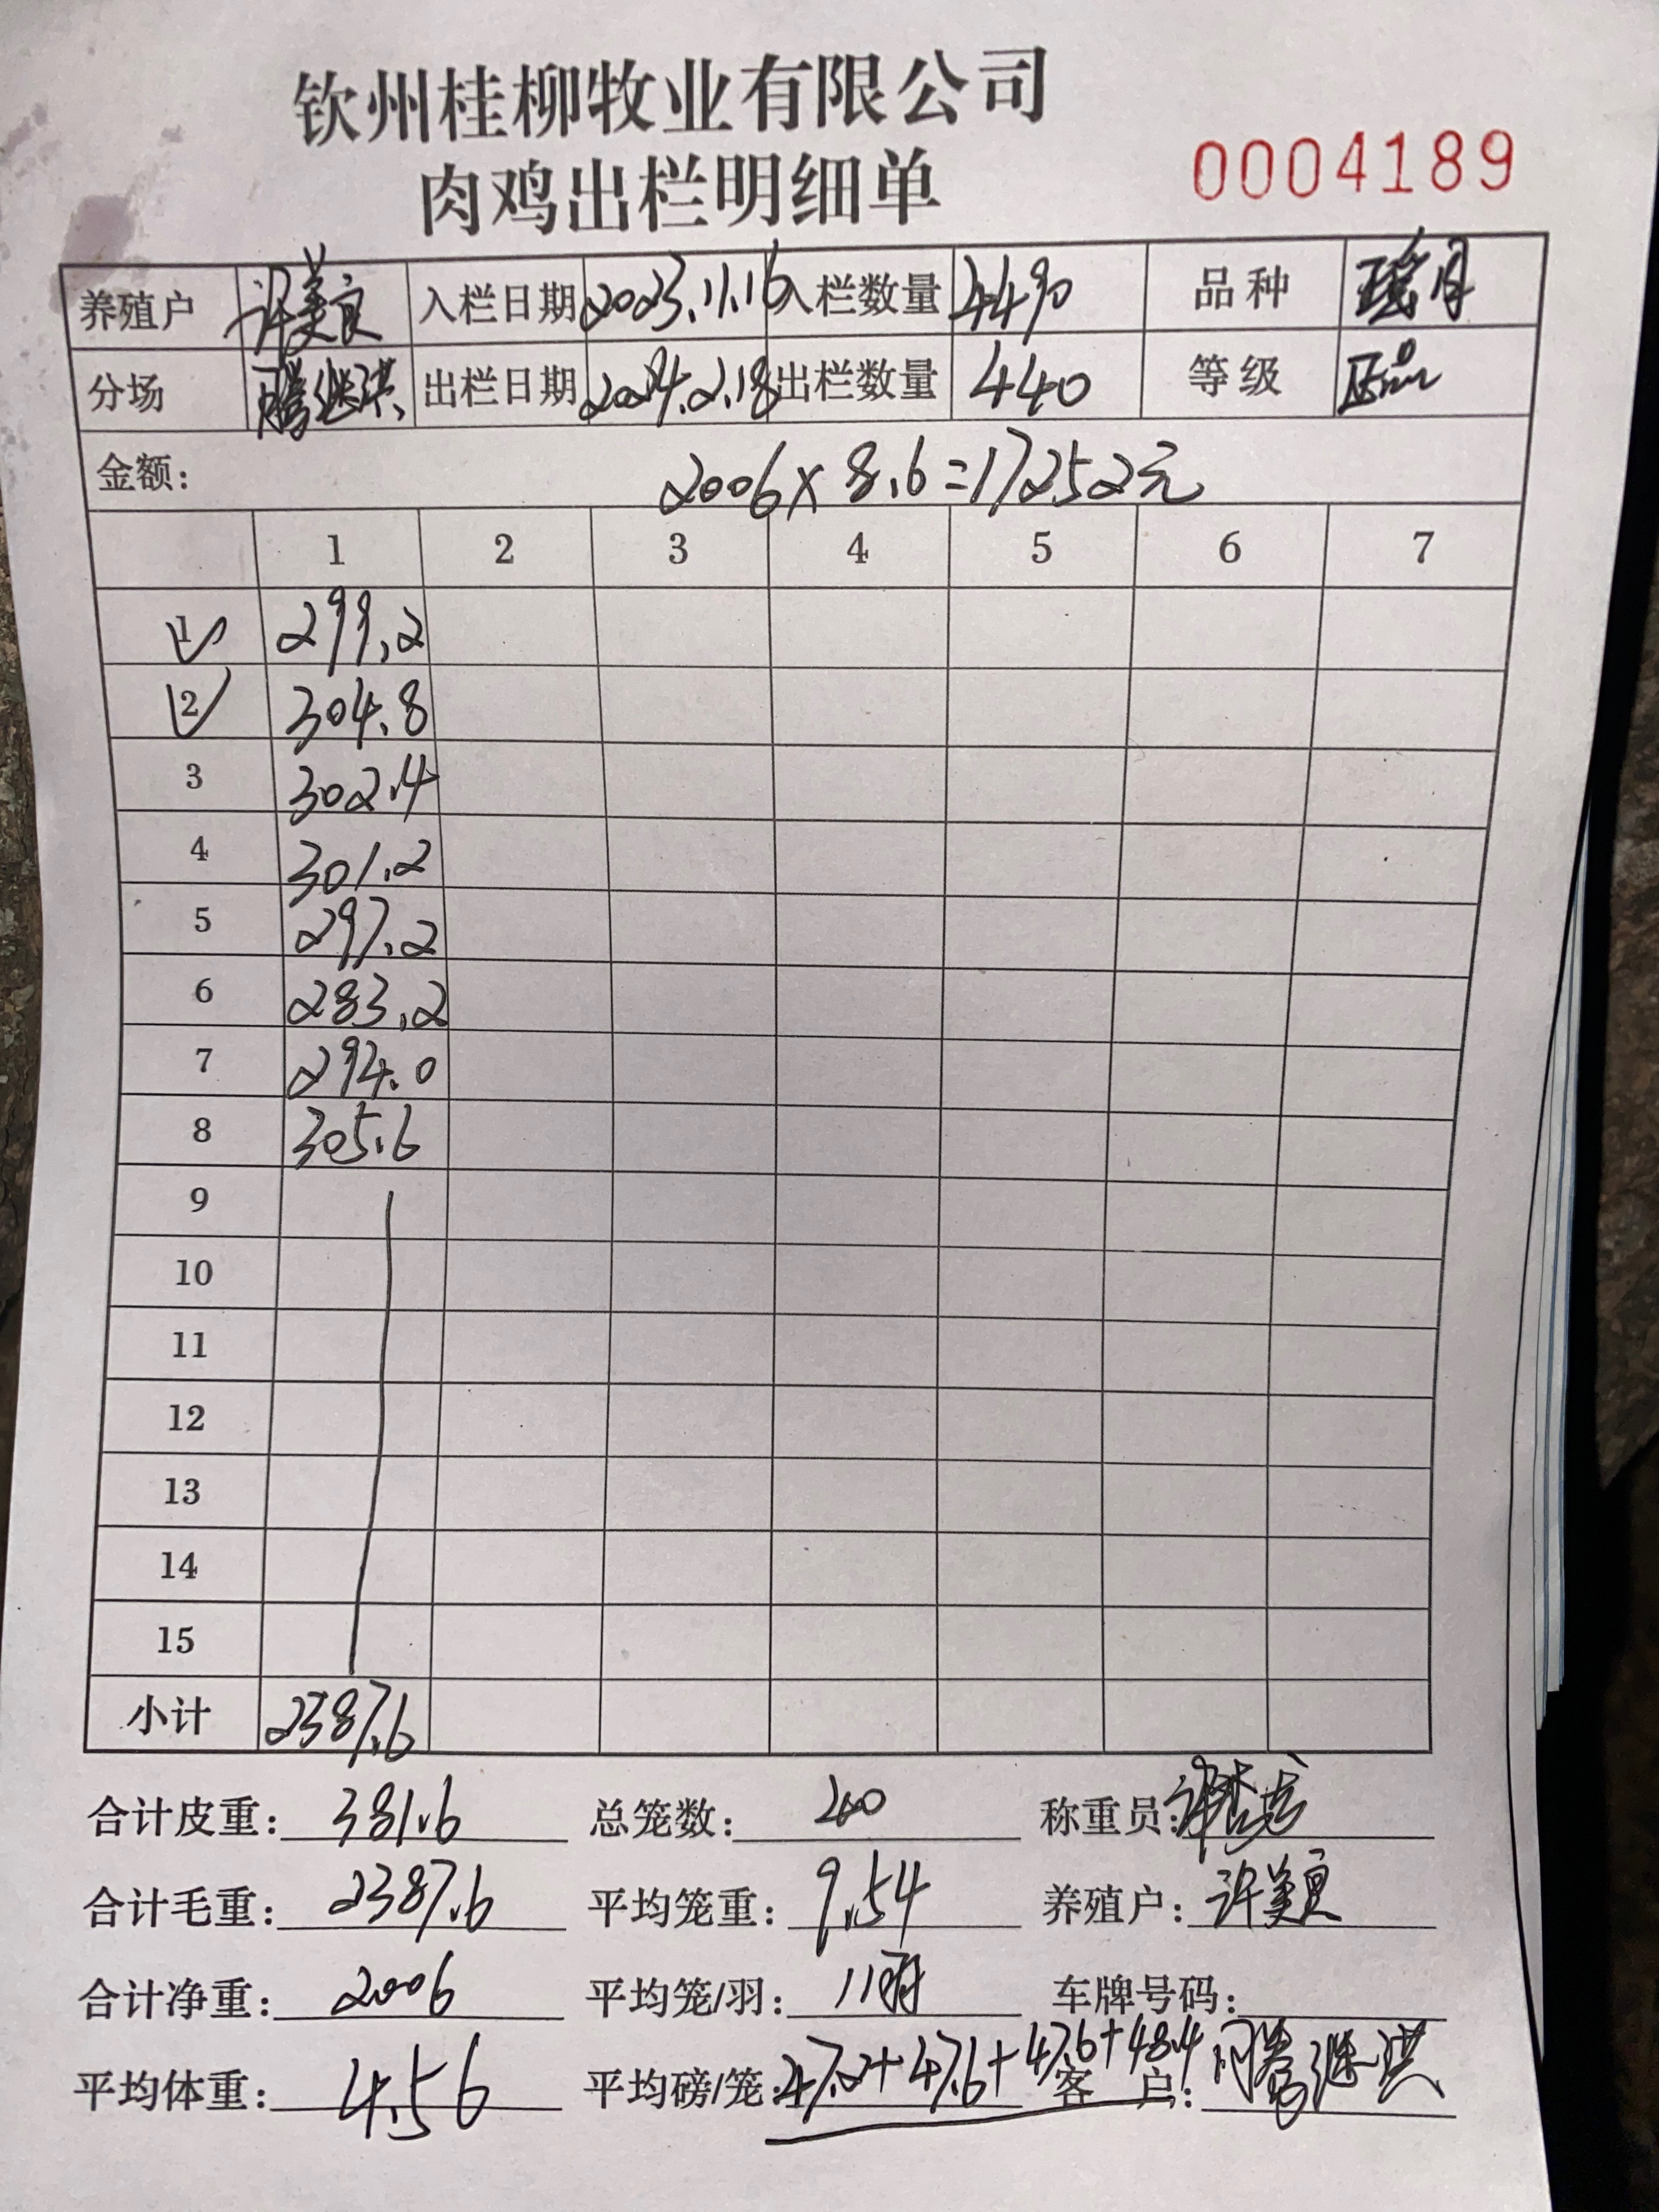 钦州桂柳牧业有限公司
肉鸡出栏明细单 0004189
养殖户 许美良 入栏日期 2023.11.16 入栏数量 4490 品种 瑶月
分场 腾继洪 出栏日期 2024.2.18 出栏数量 440 等级 正品
金额: 2006×8.6=17252元
1 2 3 4 5 6 7
1 299.2
2 304.8
3 302.4
4 301.2
5 297.2
6 283.2
7 294.0
8 305.6
9
10
11
12
13
14
15
小计 2387.6
合计皮重: 381.6 总笼数: 200 称重员:
合计毛重: 2387.6 平均笼重: 9.54 养殖户: 许美良
合计净重: 2006 平均笼/羽: 11 车牌号码:
平均体重: 4.56 平均磅/笼: 47.2+47.6+47.6+48.4 客户: 腾继洪